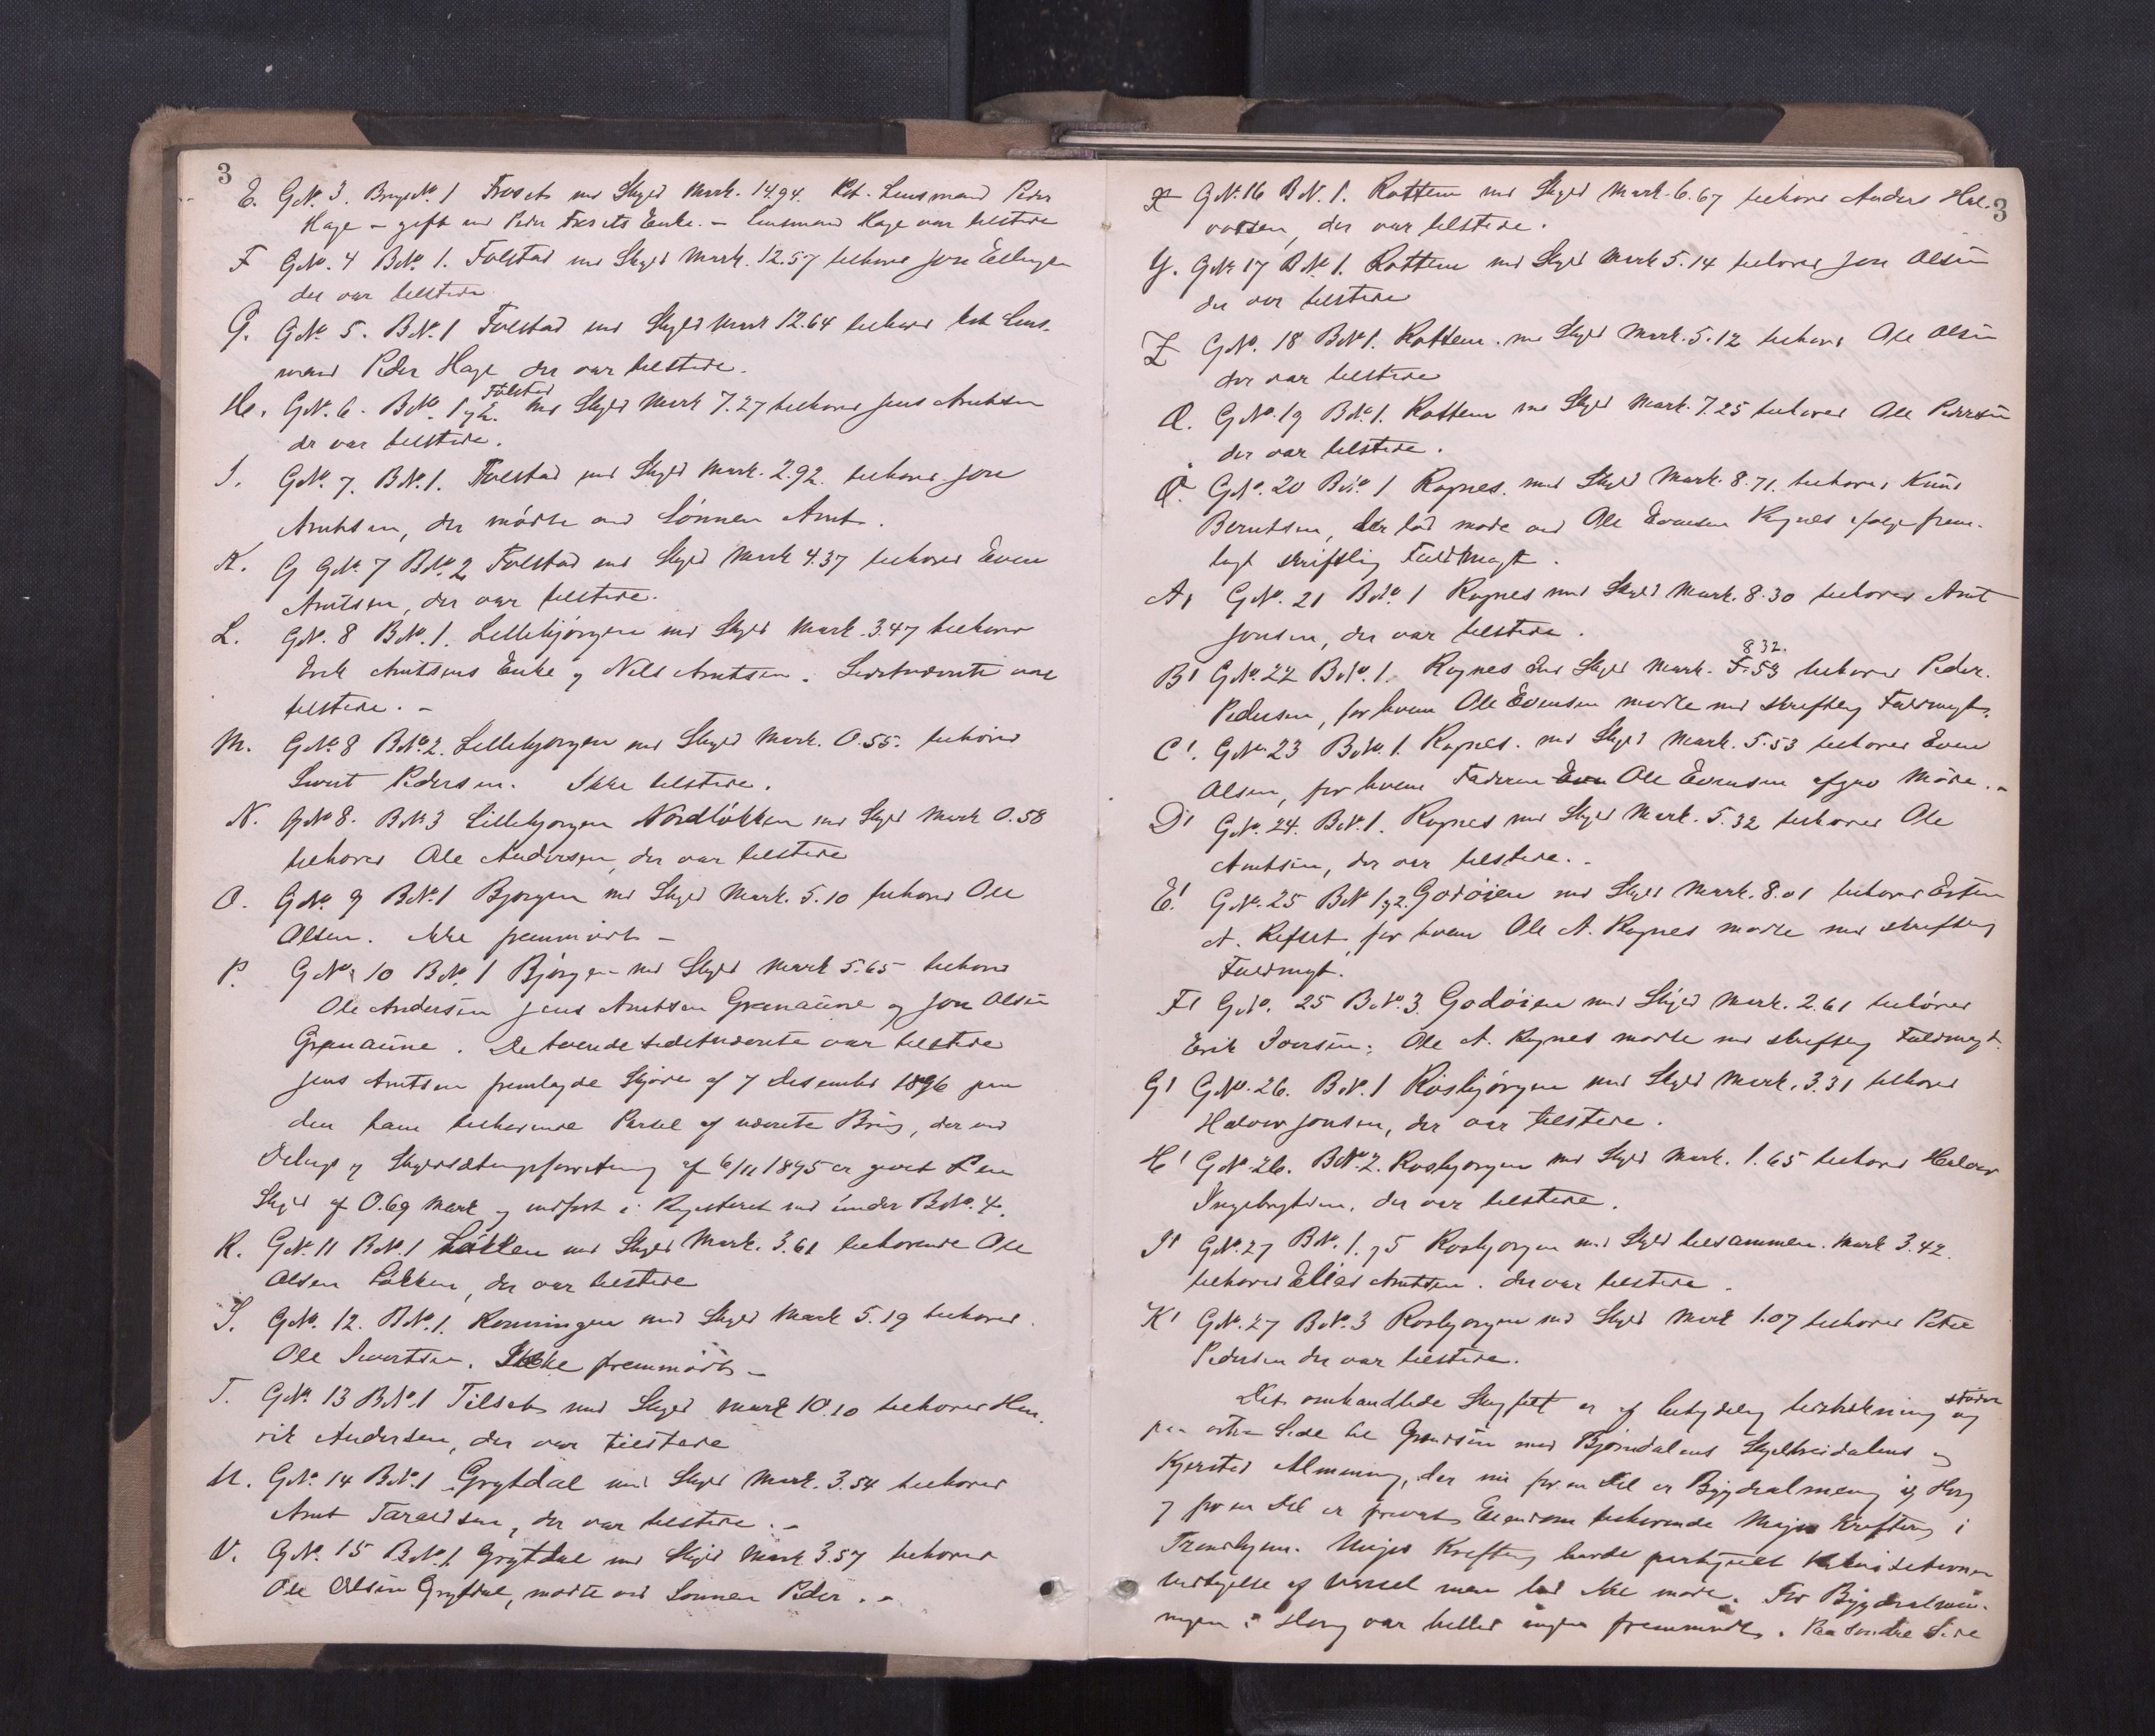 3
E. GN. 3. BrugsNo. 1 Froset med Skyld Mark. 14.94. Kst. Lensmand Peder
Hage - gift med Peder Frosets Enke. - Lensmand Hage var tilstede
F GNo. 4 BNo. 1. Folstad med Skyld Mark. 12.57 tilhører Jon Ellingsen
der var tilstede
G. GNo. 5. BNo. 1 Folstad med Skyld Mark 12.64 tilhører kst. Lens-
mand Peder Hage der var tilstede.
H. GN. 6. BNo. 1 og 2. Folstad med Skyld Mark 7.27 tilhører Jens Arntsen
der var tilstede.
I. GNo. 7. BNo. 1. Folstad med Skyld Mark. 2.92. tilhører Jon
Arntsen, der mødte ved Sønnen Arnt.
K. G GNo. 7 BNo. 2 Folstad med Skyld Mark 4.37 tilhører Even
Arntsen, der var tilstede.
L. GNo. 8 BNo. 1. Lillebjørgen med Skyld Mark. 3.47 tilhører
Erik Arntsens Enke og Nils Arntsen. Sidstnævnte var
tilstede. -
M. GNo. 8 BNo. 2. Lillebjørgen med Skyld Mark. 0.55. tilhører
Sivert Pedersen. Ikke tilstede.
N. GNo 8. BNo 3 Lillebjørgen Nordløkken med Skyld Mark 0.58
tilhører Ole Andersen, der var tilstede
O. GNo. 9 BNo. 1 Bjørgen med Skyld Mark. 5.10 tilhører Ole
Olsen. Ikke fremmødt -
P. GNo. 10 BNo. 1 Bjørgen med Skyld Mark 5.65 tilhører
Ole Andersen Jens Arntsen Granaune og Jon Olsen
Granaune. De tvende sidstnævnte var tilstede
Jens Arntsen fremlagde Skjøde af 7 Desember 1896 paa
den ham tilhørende Parsel af nævnte Brug, der ved
Delings og Skyldsætningsforretning af 6/11 1895 er givet en
Skyld af 0.69 Mark og indført i Registeret under BNo. 4.
R. GNo. 11 BNo. 1 Løkken med Skyld Mark. 3.61 tilhørende Ole
Olsen Løkken, der var tilstede
S. GNo. 12. BNo. 1. Konningen med Skyld Mark 5.19 tilhører
Ole Sivertsen. Ikke fremmødt -
T. GNo. 13 BNo. 1 Tilset med Skyld Mark 10.10 tilhører Hen-
rik Andersen, der var tilstede
U. GNo. 14 BNo. 1 Grytdal med Skyld Mark. 3.54 tilhører
Arnt Taraldsen, der var tilstede. -
V. GNo. 15 BNo. 1 Grytdal med Skyld Mark 3.57 tilhører
Ole Olsen Grytdal, mødte ved Sønnen Peder. -
3
X GNo. 16 BN. 1. Rottem med Skyld Mark. 6.67 tilhører Anders Hal-
vorsen, der var tilstede.
Y. GNo. 17 BNo. 1. Rottem med Skyld Mark 5.14 tilhører Jon Olsen
der var tilstede
Z GNo. 18 BNo 1. Rottem. med Skyld Mark. 5.12 tilhører Ole Olsen
der var tilstede
Æ. GNo. 19 BNo. 1. Rottem med Skyld Mark. 7.25 tilhører Ole Pedersen
der var tilstede.
Ø. GNo. 20 BNo. 1 Rognes. med Skyld Mark. 8.71. tilhører Knud
Berntsen, der lod møde ved Ole Evensen Rognes ifølge frem-
lagt skriftlig Fuldmagt.
A1 GNo. 21 BNo. 1 Rognes med Skyld Mark. 8.30 tilhører Arnt
Jonsen, der var tilstede.
8 32.
B1 GNo. 22 BNo. 1. Rognes med Skyld Mark. 5.53 tilhører Peder
Pedersen, for hvem Ole Evensen mødte med skriftlig Fuldmagt.
C1. GNo. 23 BNo. 1. Rognes. med Skyld Mark. 5.53 tilhører Even
Olsen, for hvem Faderen Even Ole Evensen afgav Møde. -
D1 GNo. 24. BNo. 1. Rognes med Skyld Mark. 5.32 tilhører Ole
Arntsen, der var tilstede. -
E1 GNo. 25 BNo 1 og 2. Godøien med Skyld Mark. 8.01 tilhører Esten
A. Refset, for hvem Ole A. Rognes mødte med skriftlig
Fuldmagt.
F1 GNo. 25 BNo. 3. Godøien med Skyld Mark. 2.61 tilhører
Erik Iversen; Ole A. Rognes mødte med skriftlig Fuldmagt.
G1 GNo. 26. BNo. 1 Rosbjørgen med Skyld Mark. 3.31 tilhører
Halvor Jonsen, der var tilstede.
H1 GNo. 26. BNo. 2. Rosbjørgen med Skyld Mark. 1.65 tilhører Halvor
Ingebrigtsen, der var tilstede.
I1 GNo. 27 BNo. 1. og 5 Rosbjørgen med Skyld tilsammen. Mark 3.42.
tilhører Elias Arntsen. der var tilstede.
K1 GNo. 27 BNo. 3 Rosbjørgen med Skyld Mark 1.07 tilhører Peter
Pedersen der var tilstede.
Det omhandlede Skogfelt er af betydelig Udstrækning og støder
paa østre Side til Grændsen med Bjørndalens Skjelbreidalens og
Kjersted Almening, der nu for en Del er Bygdealmening i Horg
og for en Del er privat Eiendom tilhørende Major Krefting i
Trondhjem. Major Krefting havde vedtagelse af Varsel men lod ikke møde. For Bygdealmen-
ningen i Horg var heller ingen fremmødt. Paa søndre Side